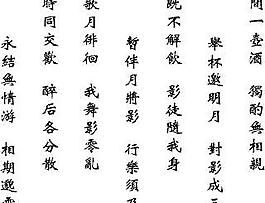 間一壺酒 獨酌無相親
舉杯邀明月 對影成三
既不解飲 影徒隨我身
暫伴月將影 行樂須及
歌月徘徊 我舞影零亂
時同交歡 醉后各分散
永結無情游 相期邀雲